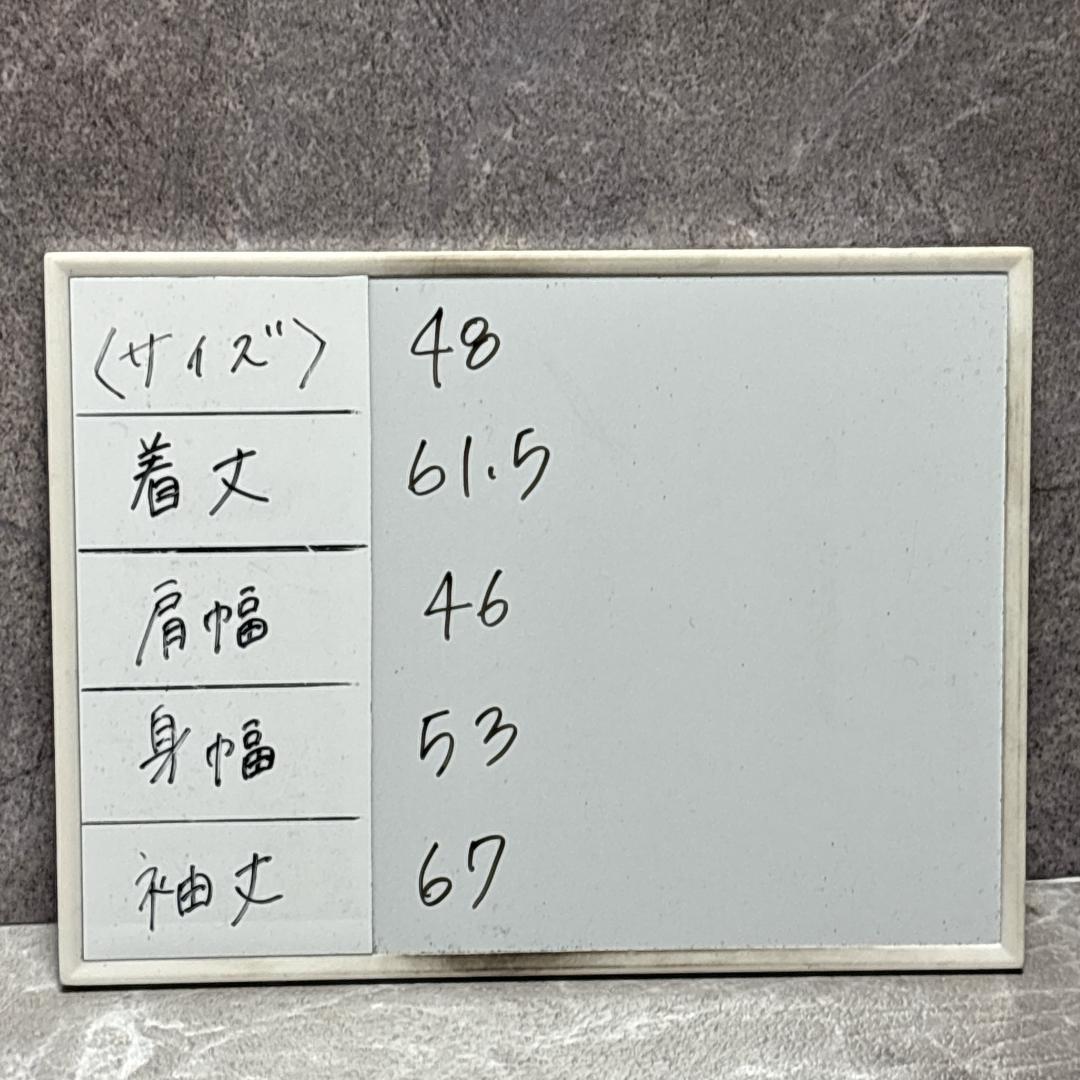 〈サイズ〉 48
着丈 61.5
肩幅 46
身幅 53
袖丈 67